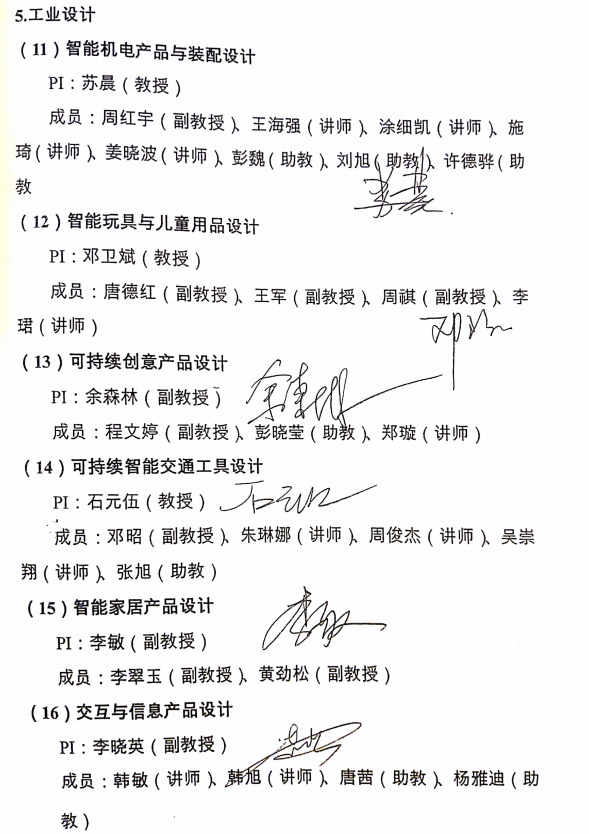 5.工业设计
（11）智能机电产品与装配设计
PI：苏晨（教授）
成员：周红宇（副教授）、王海强（讲师）、涂细凯（讲师）、施
琦（讲师）、姜晓波（讲师）、彭魏（助教）、刘旭（助教）、许德骅（助
教
（12）智能玩具与儿童用品设计
PI：邓卫斌（教授）
成员：唐德红（副教授）、王军（副教授）、周祺（副教授）、李
珺（讲师）
（13）可持续创意产品设计
PI：余森林（副教授）
成员：程文婷（副教授）、彭晓莹（助教）、郑璇（讲师）
（14）可持续智能交通工具设计
PI：石元伍（教授）
成员：邓昭（副教授）、朱琳娜（讲师）、周俊杰（讲师）、吴崇
翔（讲师）、张旭（助教）
（15）智能家居产品设计
PI：李敏（副教授）
成员：李翠玉（副教授）、黄劲松（副教授）
（16）交互与信息产品设计
PI：李晓英（副教授）
成员：韩敏（讲师）、韩旭（讲师）、唐茜（助教）、杨雅迪（助
教）